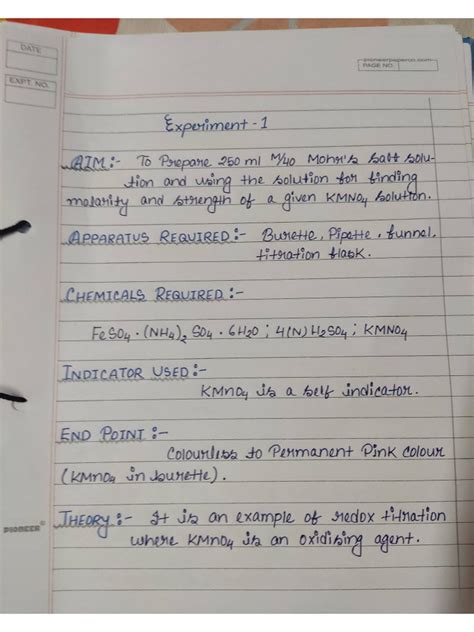 DATE
EXPT. NO.
pioneerpaperco.com
PAGE NO.
Experiment - 1
AIM:- To Prepare 250 ml M/40 Mohr's salt solu-
tion and using the solution for finding
molarity and strength of a given KMnO4 solution.
APPARATUS REQUIRED:- Burette, Pipette, funnel,
titration flask.
CHEMICALS REQUIRED:-
FeSO4 · (NH4)2 SO4 · 6H2O ; 4(N) H2SO4 ; KMnO4
INDICATOR USED:-
KMnO4 is a self indicator.
END POINT:-
Colourless to Permanent Pink colour
(KMnO4 in burette).
THEORY:- It is an example of redox titration
PIONEER®
where KMnO4 is an oxidising agent.